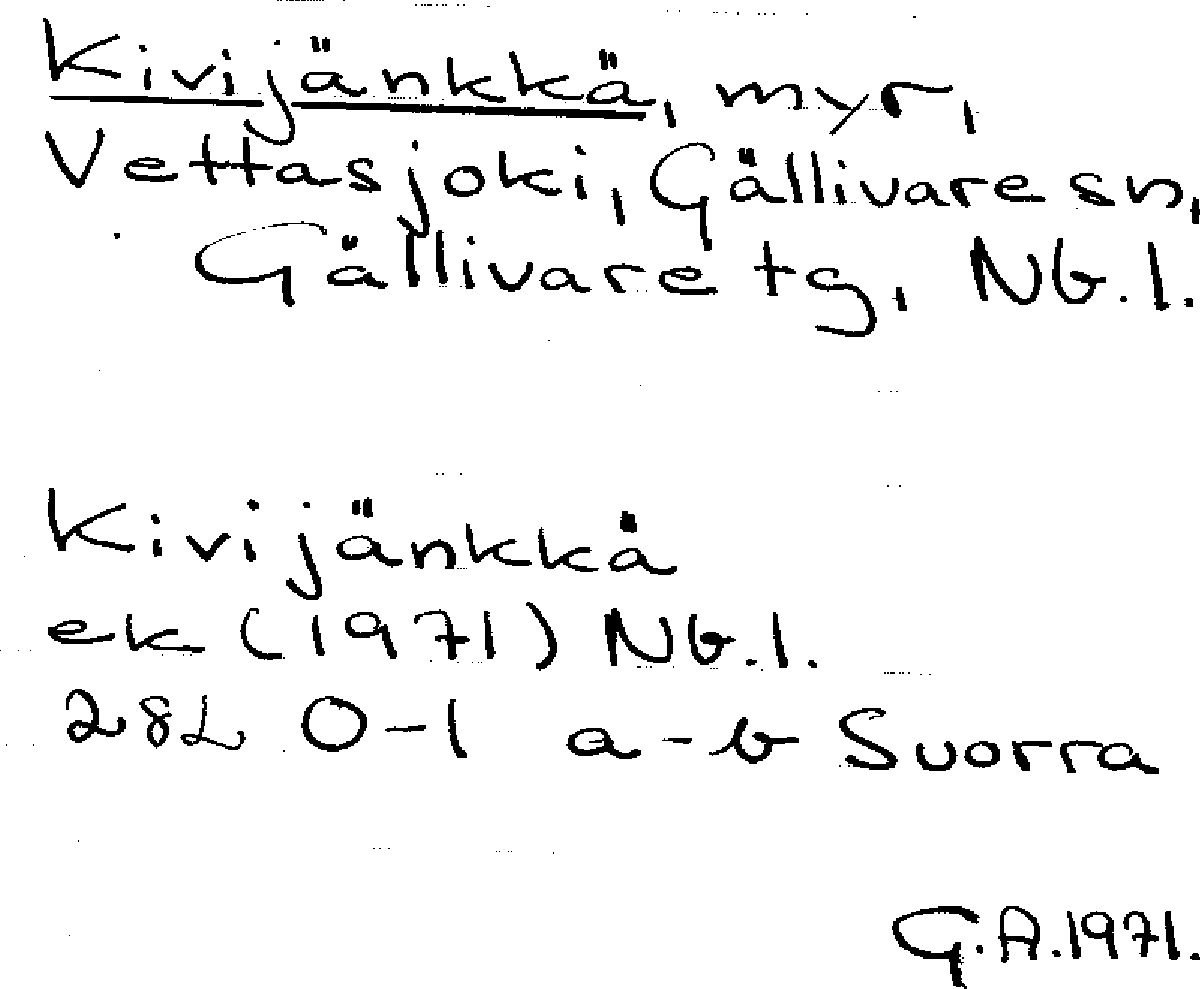 Kivijänkkä, myr,
Vettasjoki, Gällivare sn,
Gällivare tg, Nb. l.
Kivijänkkä
ek (1971) Nb. l.
28L 0-1 a-b Suorra
G.A. 1971.